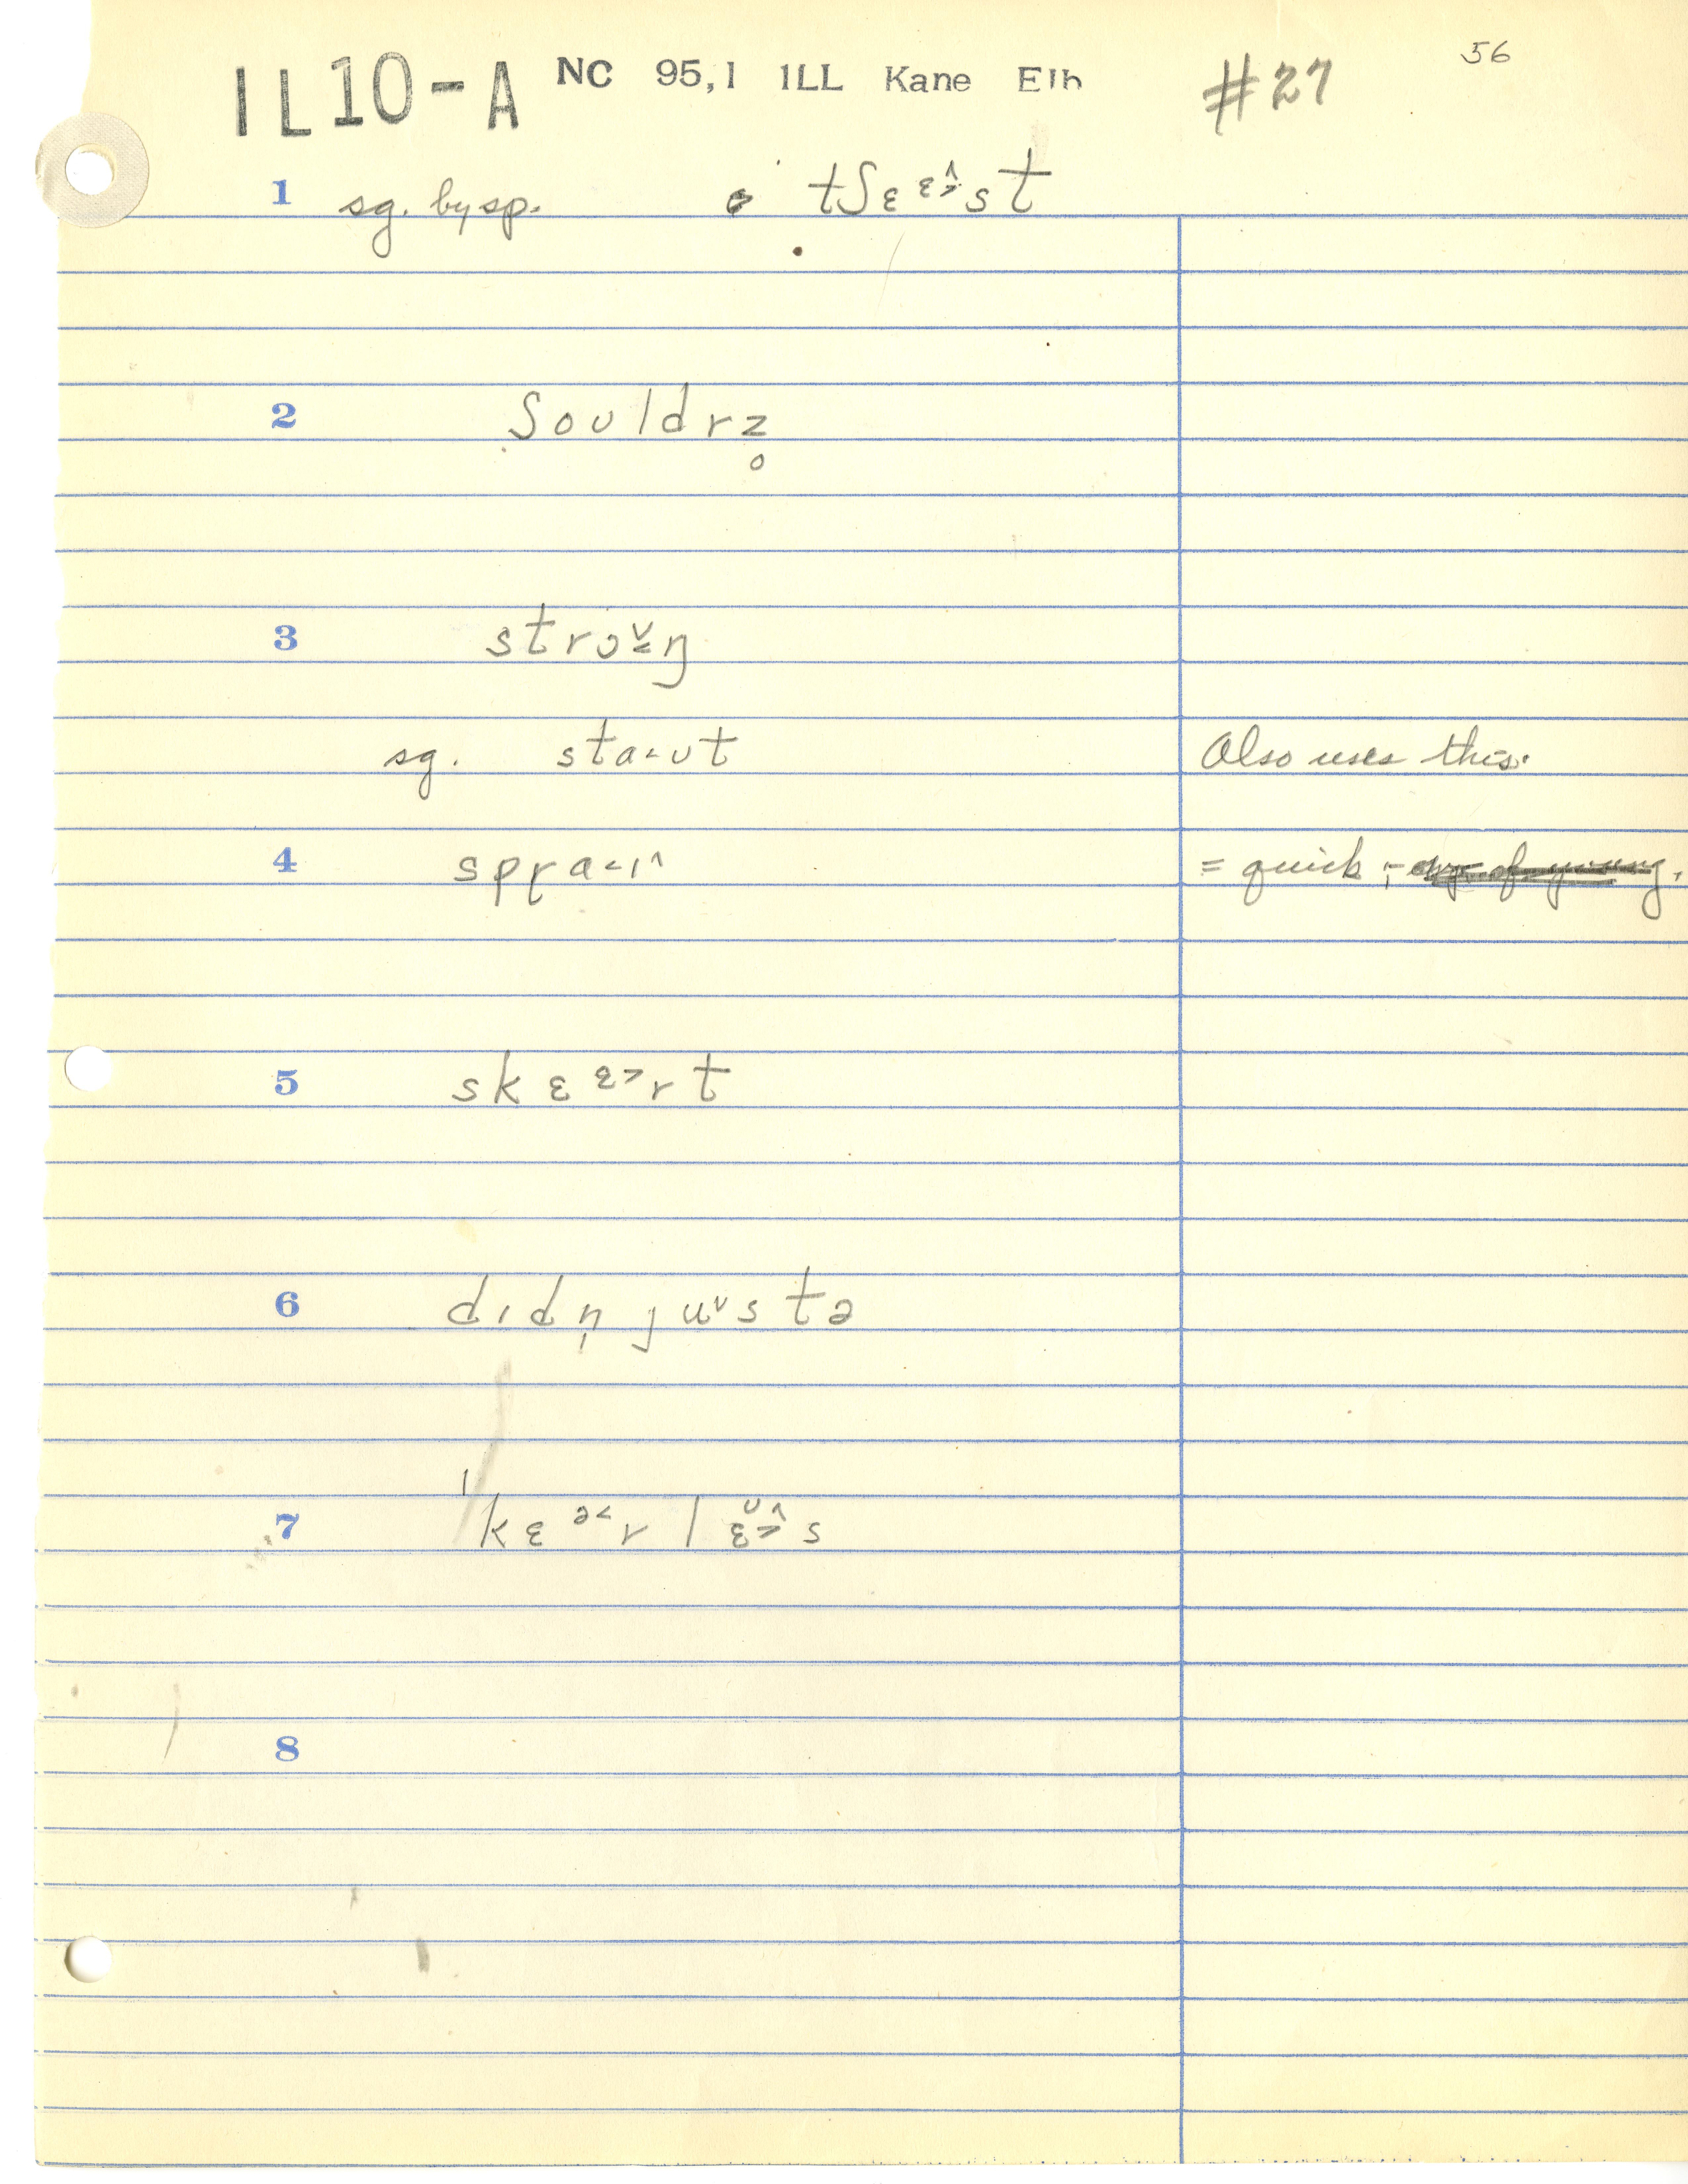 IL10-A NC 95,1 ILL Kane Elh #27 56
1 sg. by sp. tʃɛɛ˃̂st
2 ʃoʊldrz̥
3 strɔˇ̱ŋ
sg. sta˂ʊt Also uses this.
4 spɾa˂ɪ^ = quick ;
5 skɛᵋ˃rt
6 dɪdn̩ juᵛstə
7 ˈkɛᵊ˂rlɛ̆˃̂s
8